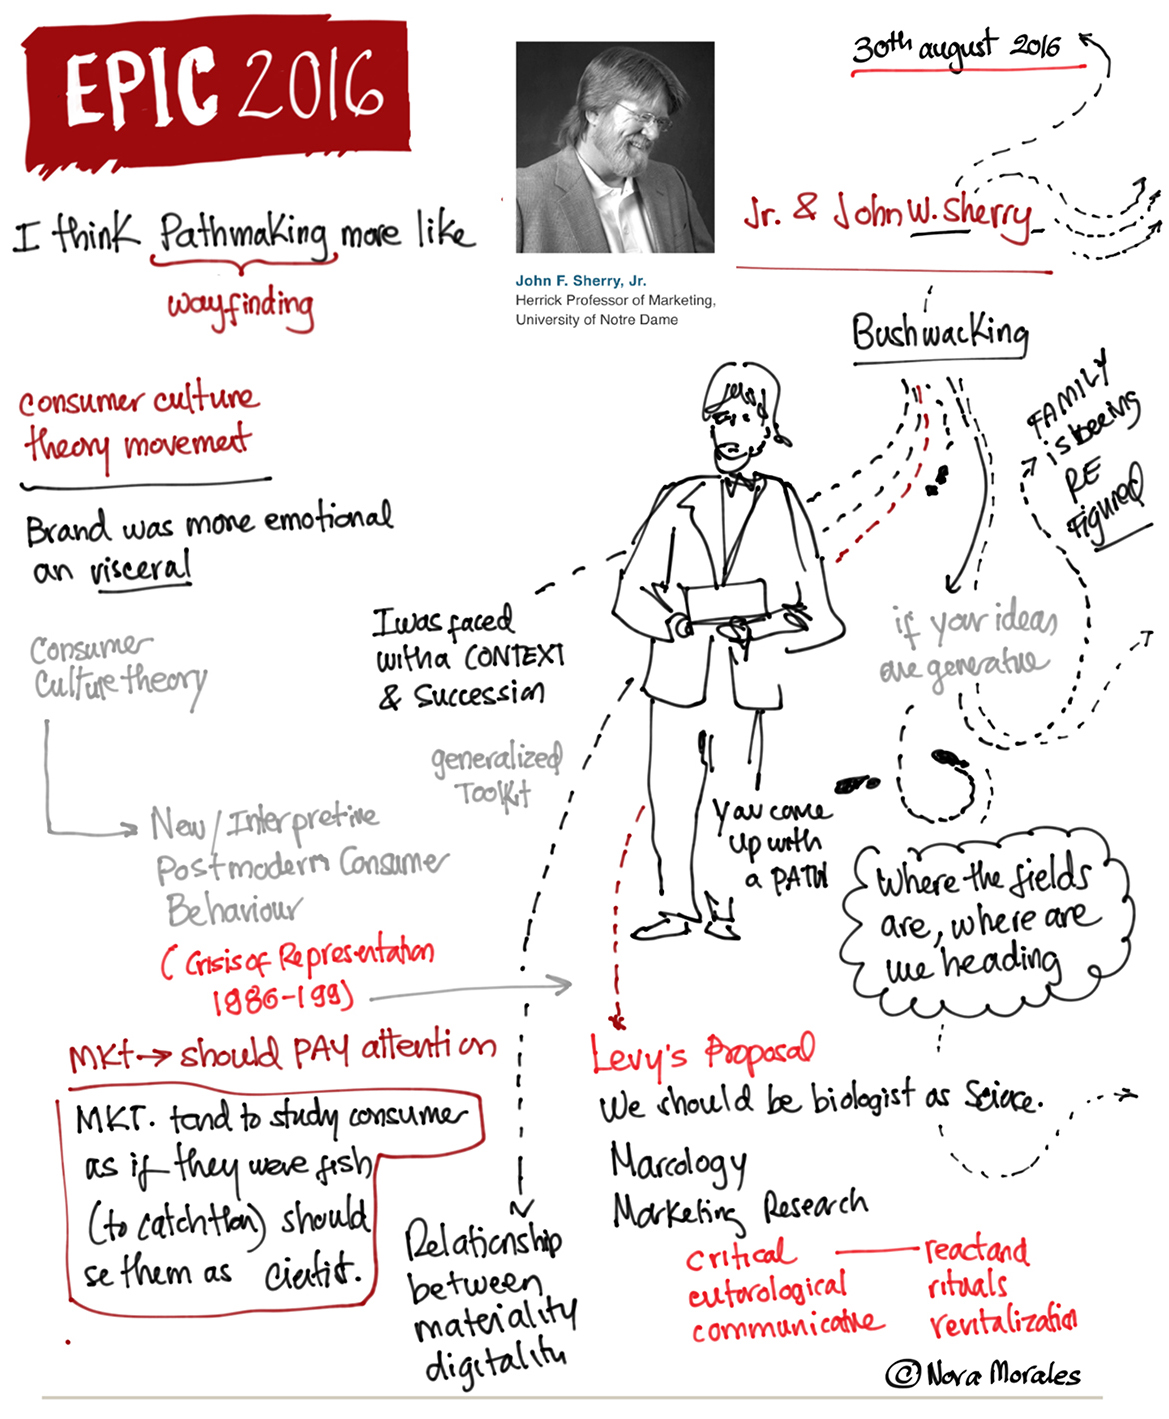 EPIC 2016
30th august 2016
I think Pathmaking more like
wayfinding
John F. Sherry, Jr.
Herrick Professor of Marketing,
University of Notre Dame
Jr. & John W. Sherry
Bushwacking
FAMILY
is beeing
RE
Figured
consumer culture
theory movement
Brand was more emotional
an visceral
Consumer
Culture theory
New/Interpretive
Postmodern Consumer
Behaviour
(Crisis of Representation
1986-199)
I was faced
with a CONTEXT
& Succession
generalized
Toolkit
if your ideas
are generative
You come
up with
a PATH
Where the fields
are, where are
we heading
MKt → should PAY attention
MKT. tend to study consumer
as if they were fish
(to catch them) should
se them as
Relationship
between
materiality
digitality
Levy's Proposal
We should be biologist as Science.
Marcology
Marketing Research
critical — reactand
eutorological rituals
communicative revitalization
© Nora Morales